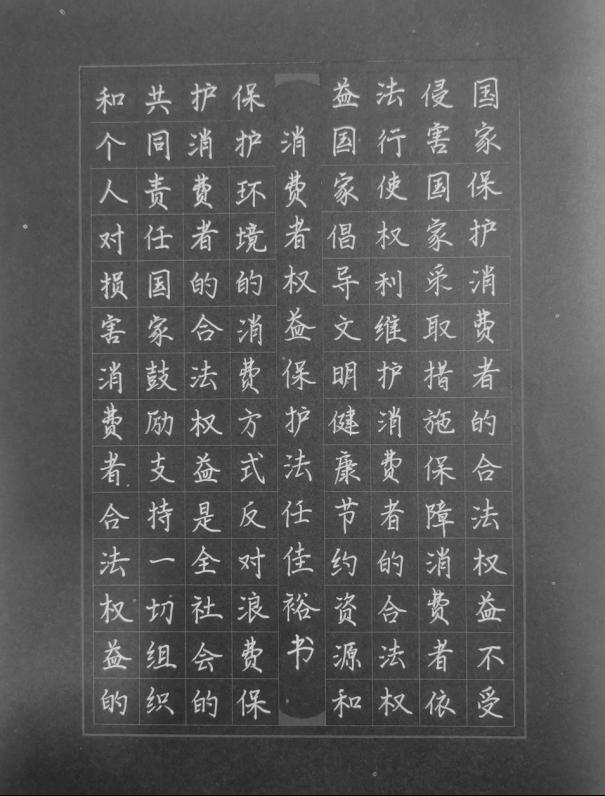 国家保护消费者的合法权益不受
侵害国家采取措施保障消费者依
法行使权利维护消费者的合法权
益国家倡导文明健康节约资源和
消费者权益保护法任佳裕书
保护环境的消费方式反对浪费保
护消费者的合法权益是全社会的
共同责任国家鼓励支持一切组织
和个人对损害消费者合法权益的